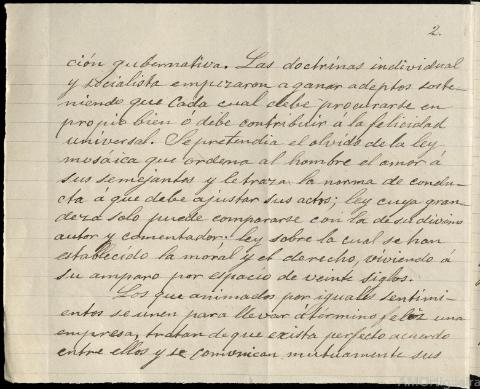 2.
ción gubernativa. Las doctrinas individual
y socialista empezaron a ganar adeptos soste-
niendo que cada cual debe procurarse en
propio bien ó debe contribilir á la felicidad
universal. Se pretendia el olvido de la ley
mosáica que ordena al hombre el amor á
sus semejantes y le traza la norma de conduc-
ta á que debe ajustar sus actos; ley cuya gran-
deza solo puede compararse con la de su divino
autor y comentador; ley sobre la cual se han
establecido la moral y el derecho, viviendo á
su amparo por espacio de veinte siglos.
Los que animados por iguales sentimi-
entos se unen para llevar á termino feliz una
empresa, tratan de que exista perfecto acuerdo
entre ellos y se comunican mutuamente sus